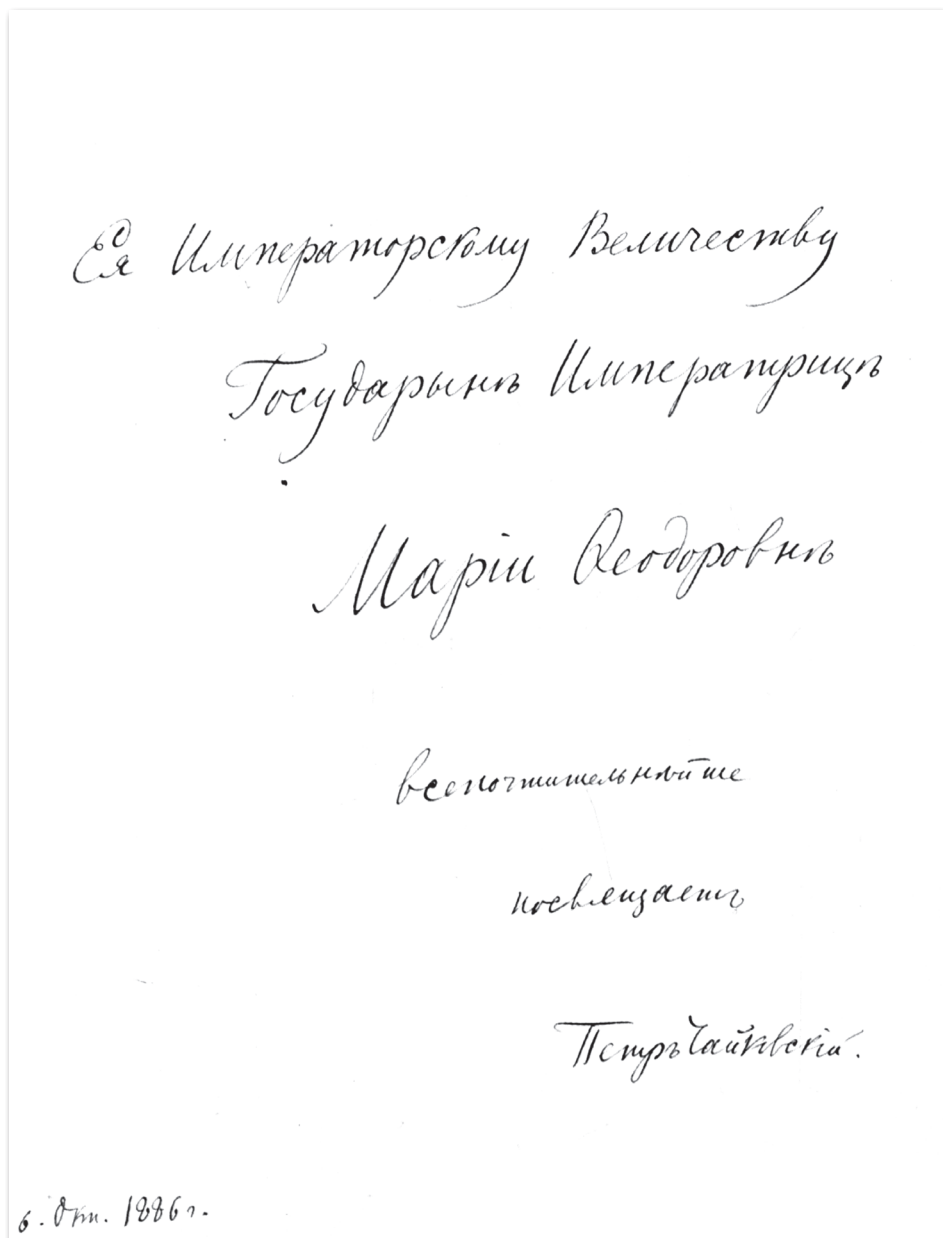 Ея Императорскому Величеству
Государынѣ Императрицѣ
Маріи Ѳеодоровнѣ
всепочтительнѣйше
посвящаетъ
Петръ Чайковскій.
6. Окт. 1886 г.